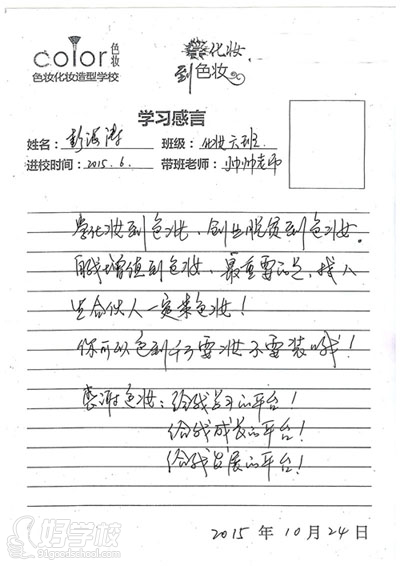 color 色妆
色妆化妆造型学校
学化妆
到色妆
学习感言
姓名：彭海涛 班级：化妆六班
进校时间：2015.6. 带班老师：帅帅老师
学化妆到色妆、创业脱贫到色妆。
自我增值到色妆、最重要的是，找人
生合伙人一定来色妆！
你可以色到千万要妆不要装哦！
感谢色妆：给我学习的平台！
给我成长的平台！
给我发展的平台！
2015年10月24日
好学校
91goodschool.com